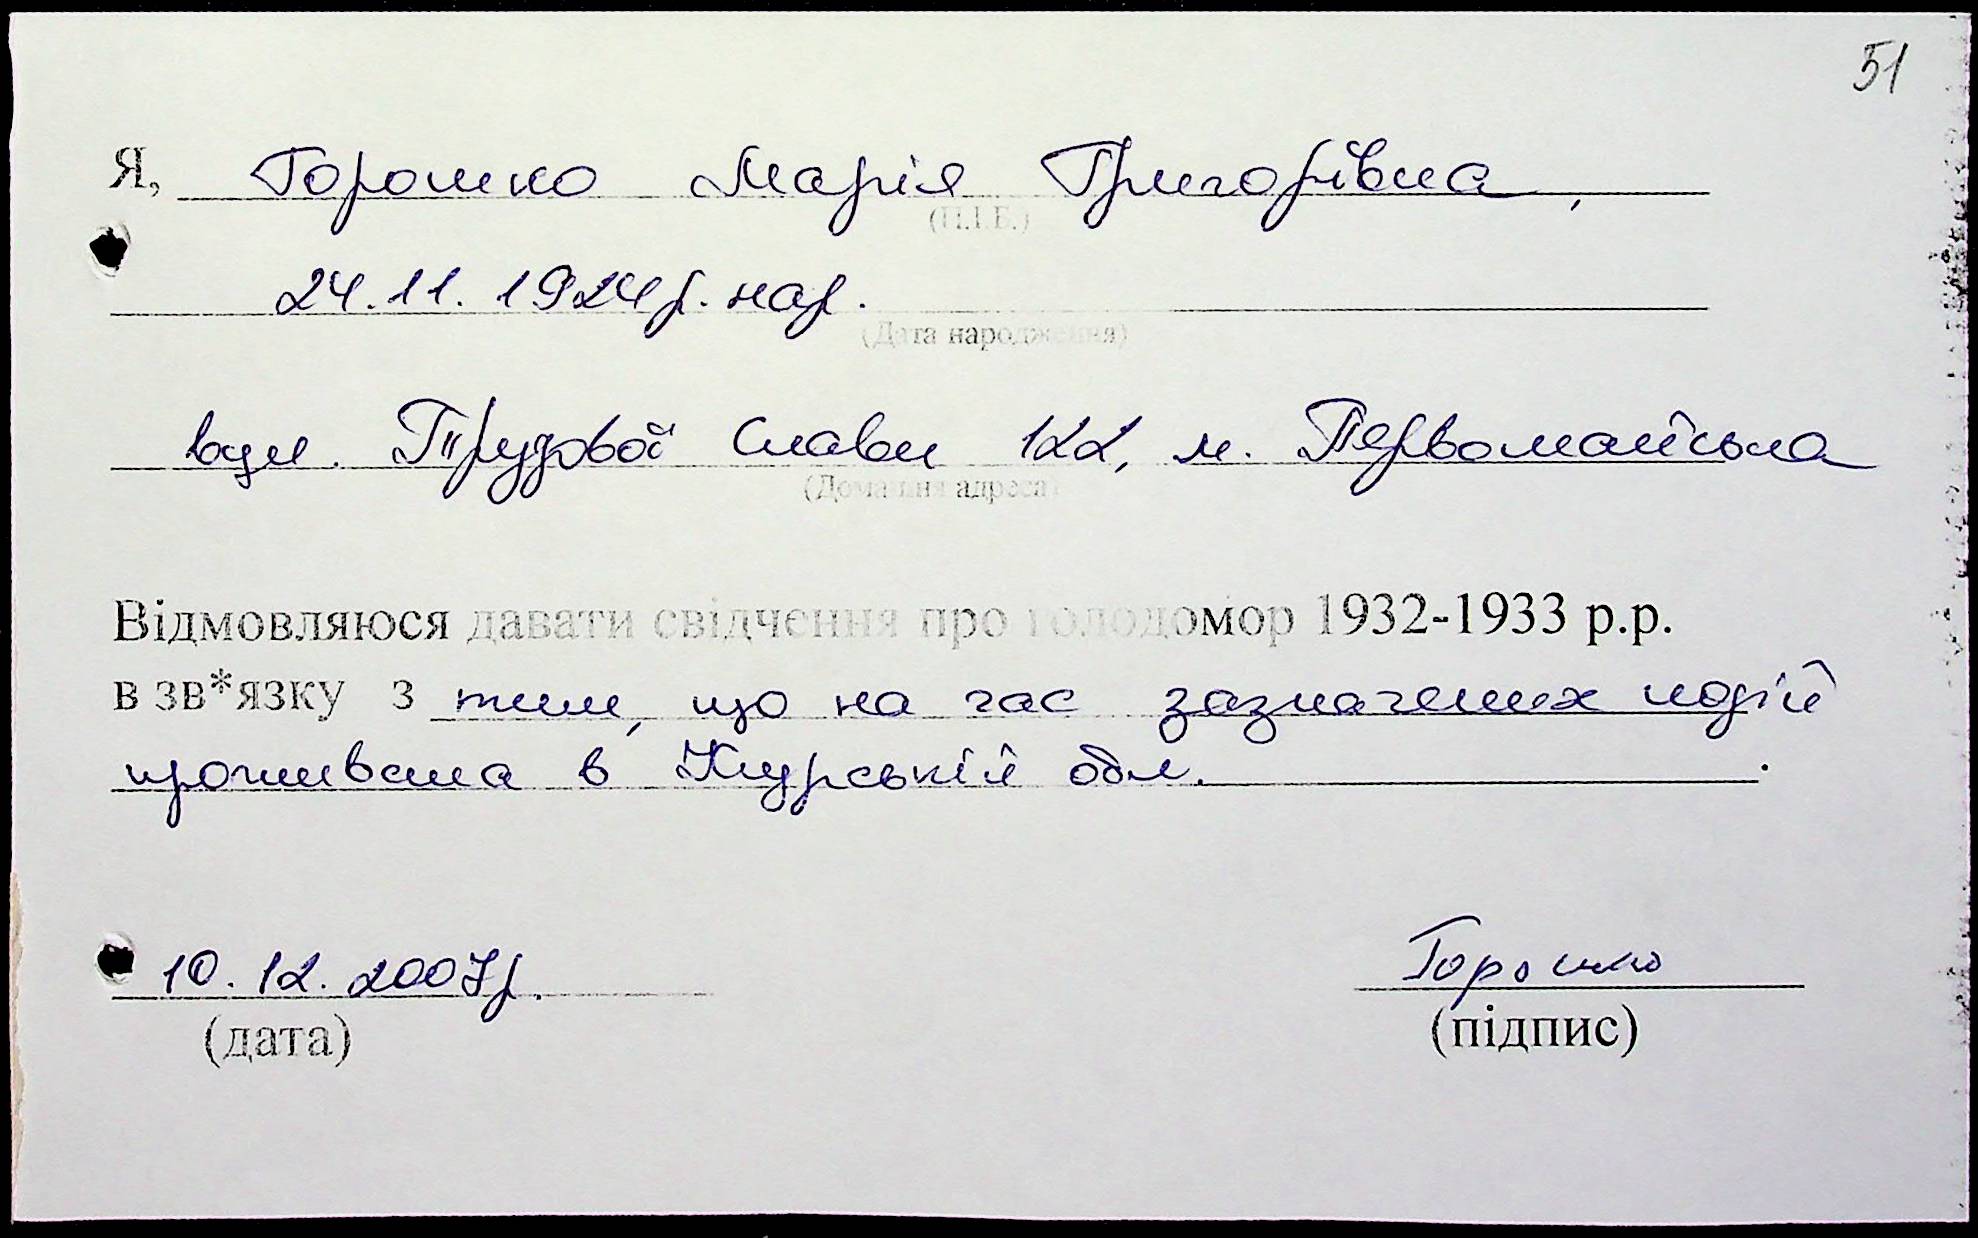 51
Я, Горошко Марія Григорівна,
(П.І.Б.)
24.11.1924р. нар.
(Дата народження)
вул. Трудової Слави 122, м. Первомайська
(Домашня адреса)
Відмовляюся давати свідчення про голодомор 1932-1933 р.р.
в зв*язку з тим, що на час зазначених подій
проживала в Курській обл. .
10.12.2007р. Горошко
(дата) (підпис)